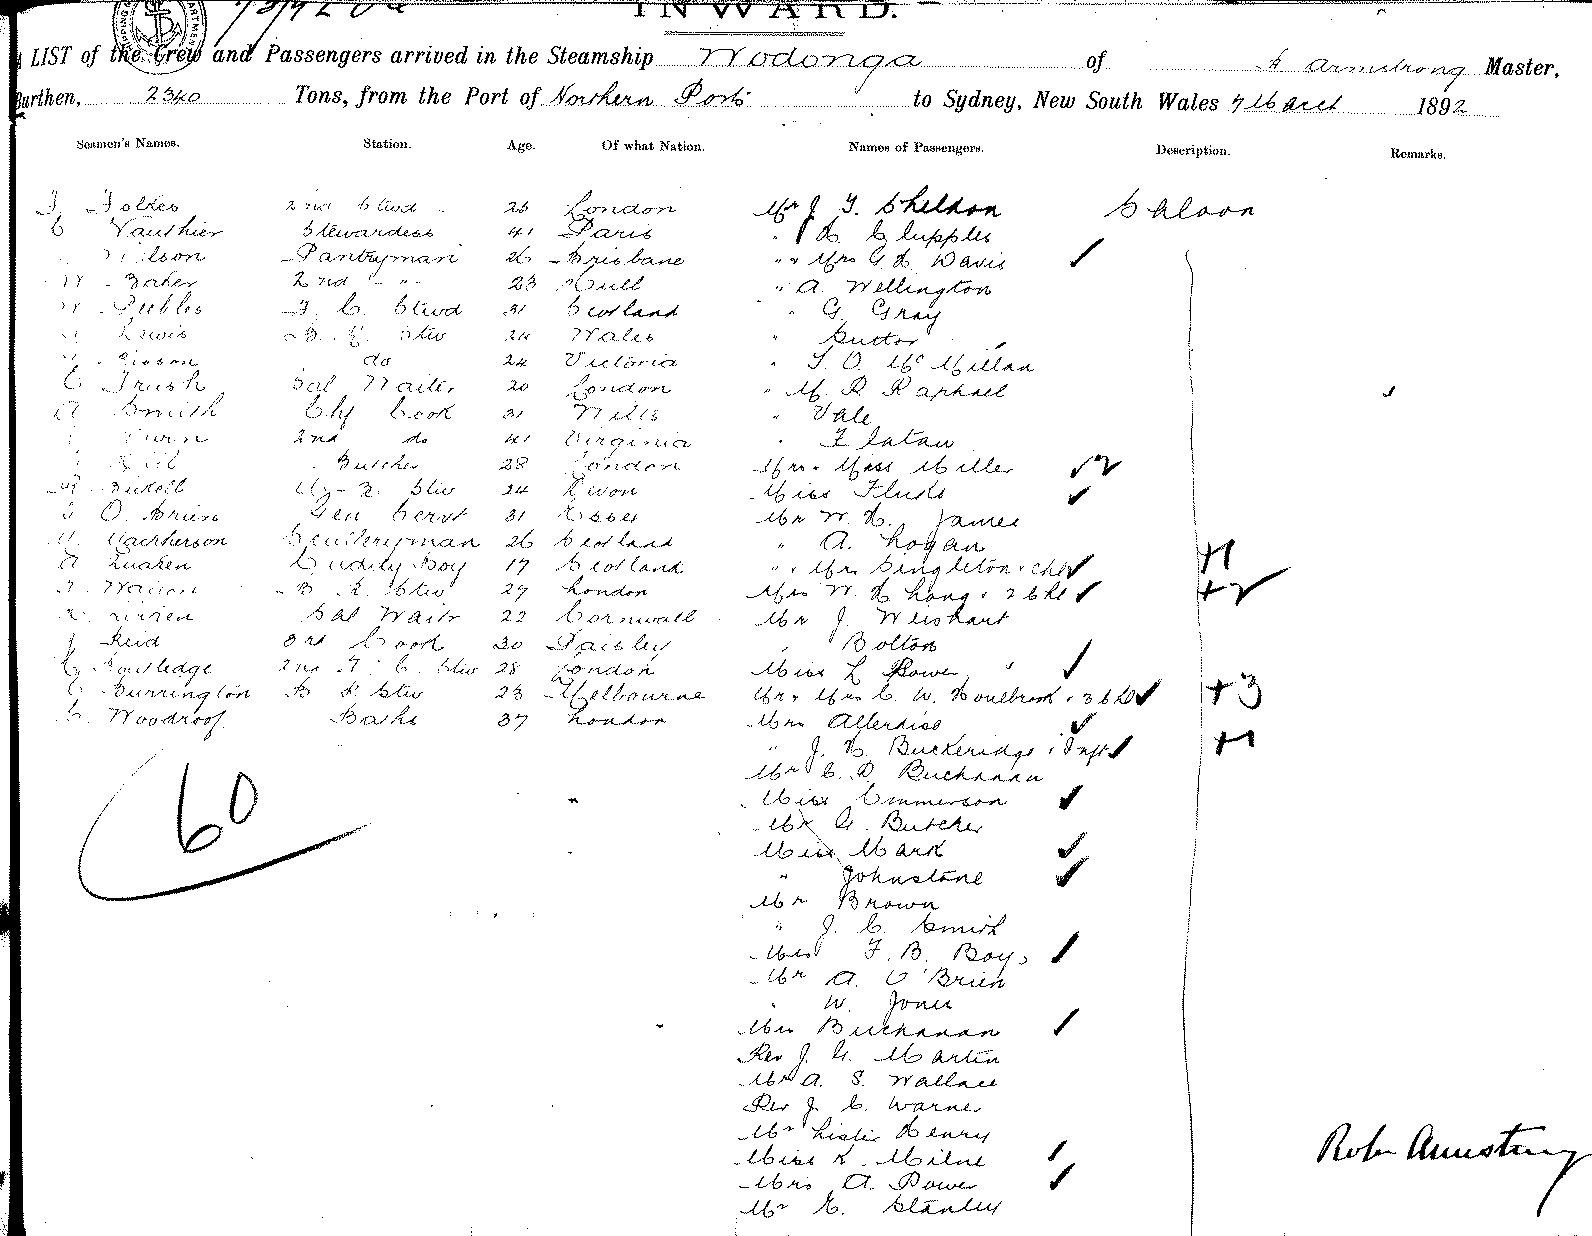 INWARD.
LIST of the Crew and Passengers arrived in the Steamship Wodonga of R Armstrong Master,
Burthen, 2340 Tons, from the Port of Northern Ports to Sydney, New South Wales 7 March 1892
Seamen's Names. Station. Age. Of what Nation. Names of Passengers. Description. Remarks.
2nd Stwd 25 London Mr J. F. Sheldon Saloon
Vauthier Stewardess 41 Paris " H C Cupples
Pantryman 26 Brisbane " " Mrs G. H. Davis
W Baker 2nd " 23 Hull " A. Wellington
W Peebles F. C. Stwd 31 Scotland " G. Gray
Lewis B. R. Stw 24 Wales "
do 24 Victoria " T. O. McMillan
C Trush Sal Waiter 20 London " M. R Raphael
A Smith Chf Cook 31 Wilts " Vale
2nd do 41 Virginia " Flatau
Butcher 28 London Mr & Miss Miller
Stw 24 Devon Miss
O'Brien Gen Servt 31 Essex Mr W. H. James
Macpherson Sculleryman 26 Scotland " A. Logan
A Cuddy Boy 17 Scotland " & Mrs Singleton & chd +1
B. R. Stw 27 London Mrs W. H Long & 2 chd +2
Sal Waitr 22 Cornwall Mr J. Wishart
J Reid 3rd Cook 30 Paisley " Bolton
C Routledge 2nd F. C. Stw 28 London Miss L Power
C Burrington B R Stw 23 Melbourne Mr & Mrs C. W. Boulbrook & 3 chd +3
C. Woodroof Baths 37 London Mrs Allerdice
" J. H. Buckeridge & Inft +1
Mr C. D. Buchanan
Miss Emmerson
Mr G. Butcher
60
Miss Mark
" Johnstone
Mr Brown
" J. C. Smith
F. B. Boys
Mr A. O'Brien
" W. Jones
Mrs Buchanan
Rev J. G. Martin
Mr A. S. Wallace
Rev J. C. Warner
Mr Lister Henry
Miss K. Milne
Robr Armstrong
Mrs A. Power
Mr E. Stanley